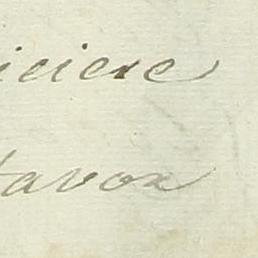 iciere
tavoa